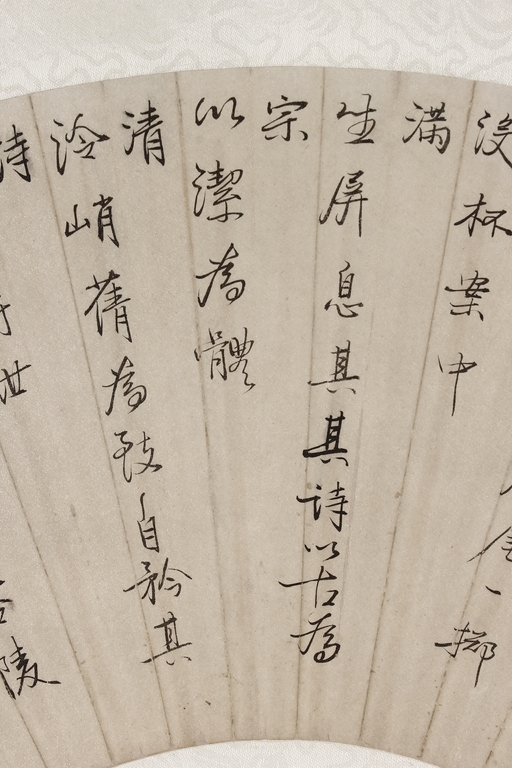 金一擲
没杯案中
满
生屏息其其詩以古為
宗
以潔為體
清
泠峭蒨為致自矜其
詩
世
陵